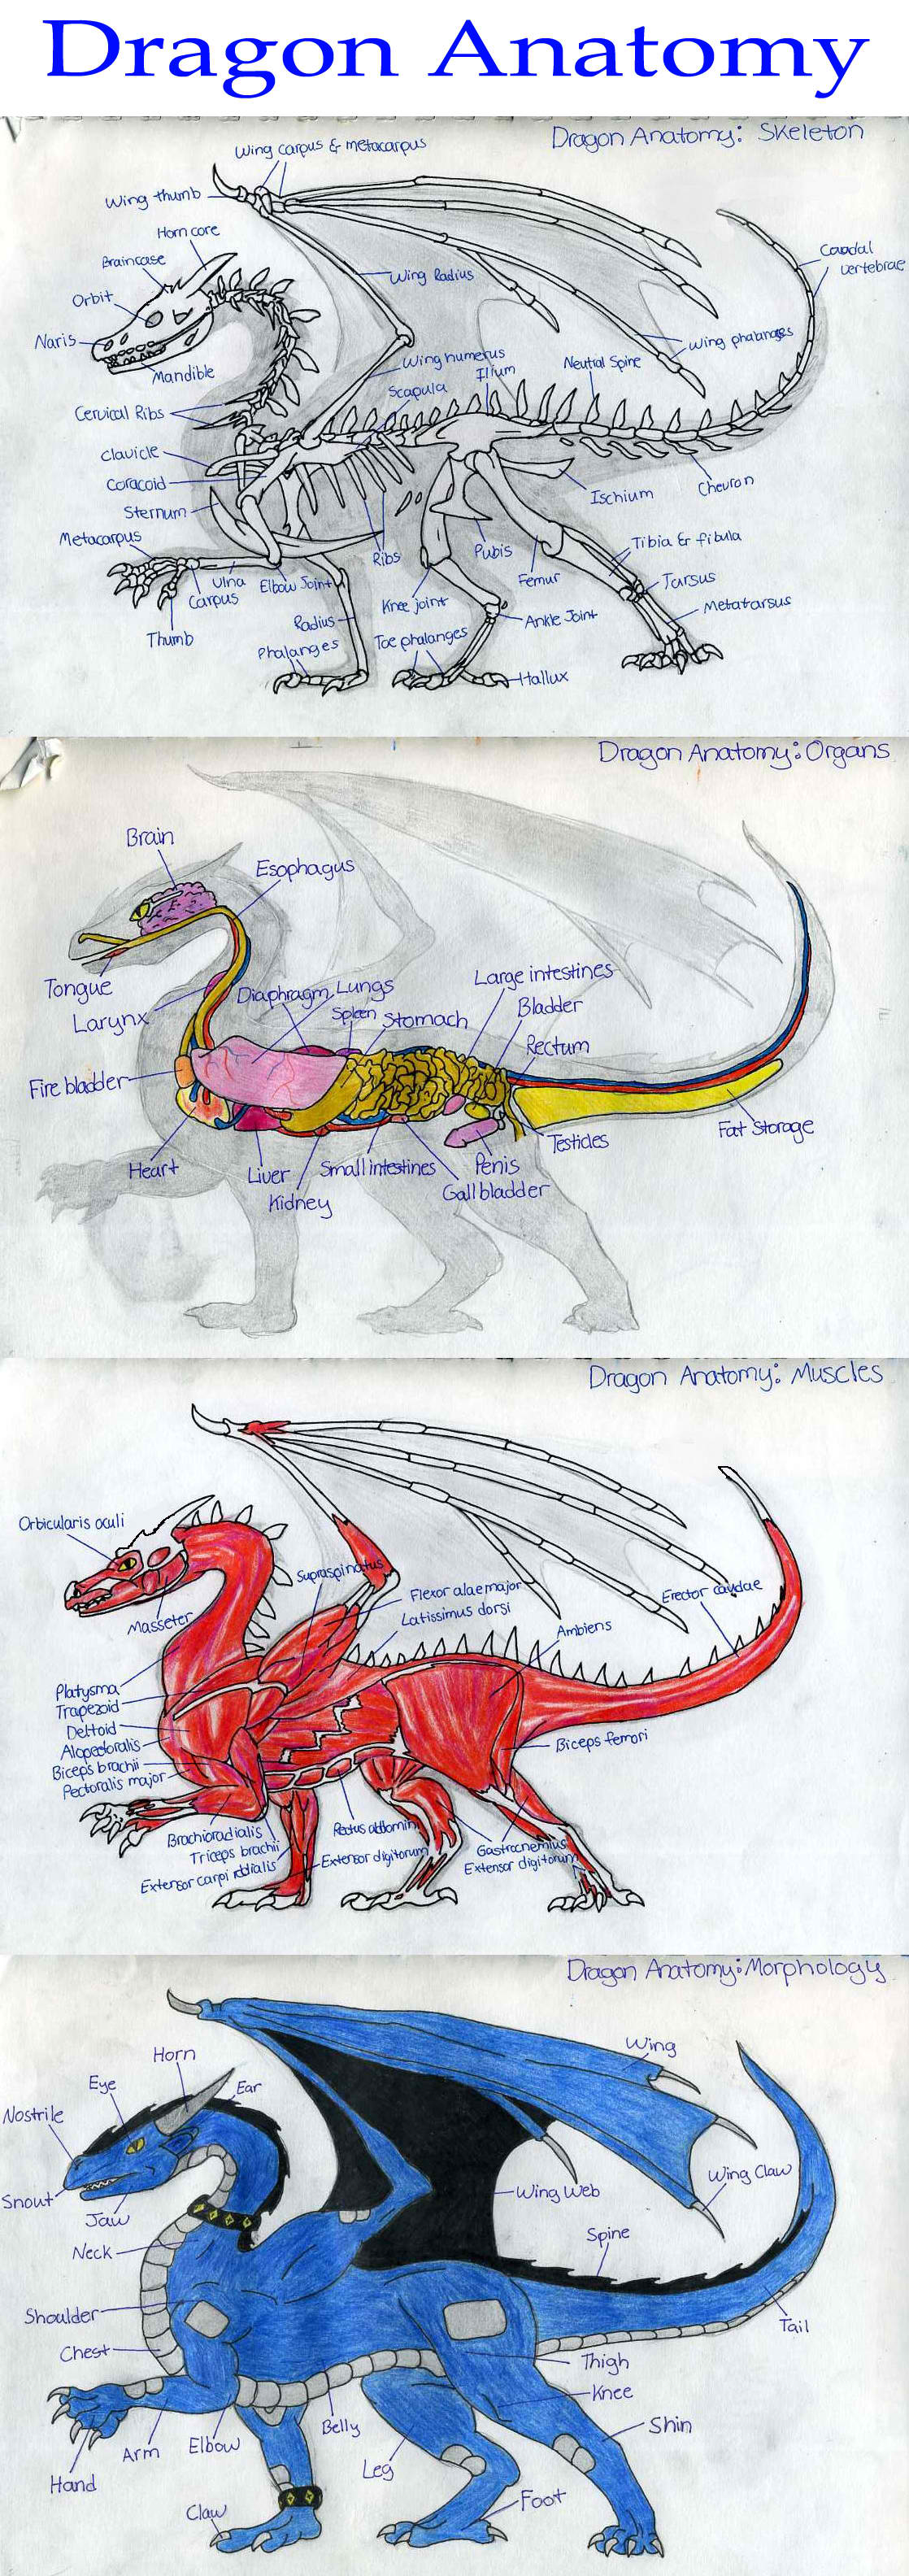 Dragon Anatomy
Dragon Anatomy: Skeleton
Wing carpus & metacarpus
Wing thumb
Horn core
Braincase
Orbit
Naris
Mandible
Wing Radius
Caudal
vertebrae
Wing phalanges
Wing humerus
Ilium
Neutial Spine
Scapula
Cervical Ribs
Clavicle
Coracoid
Sternum
Metacarpus
Ischium
Chevron
Ribs
Pubis
Femur
Tibia & fibula
Tarsus
Metatarsus
Ulna
Carpus
Elbow Joint
Knee joint
Ankle Joint
Thumb
Radius
Phalanges
Toe phalanges
Hallux
Dragon Anatomy: Organs
Brain
Esophagus
Tongue
Larynx
Diaphragm
Lungs
Spleen
Stomach
Large intestines
Bladder
Rectum
Fire bladder
Heart
Liver
Kidney
Small intestines
Penis
Gall bladder
Testicles
Fat Storage
Dragon Anatomy: Muscles
Orbicularis oculi
Masseter
Supraspinatus
Flexor alae major
Latissimus dorsi
Ambiens
Erector caudae
Platysma
Trapezoid
Deltoid
Alapectoralis
Biceps brachii
Pectoralis major
Biceps femori
Brachioradialis
Triceps brachii
Extensor carpi radialis
Rectus abdomin
Extensor digitorum
Gastrocnemius
Extensor digitorum
Dragon Anatomy: Morphology
Horn
Eye
Ear
Nostrile
Snout
Jaw
Neck
Wing
Wing Claw
Wing Web
Spine
Shoulder
Chest
Tail
Thigh
Knee
Shin
Arm
Elbow
Belly
Leg
Hand
Claw
Foot